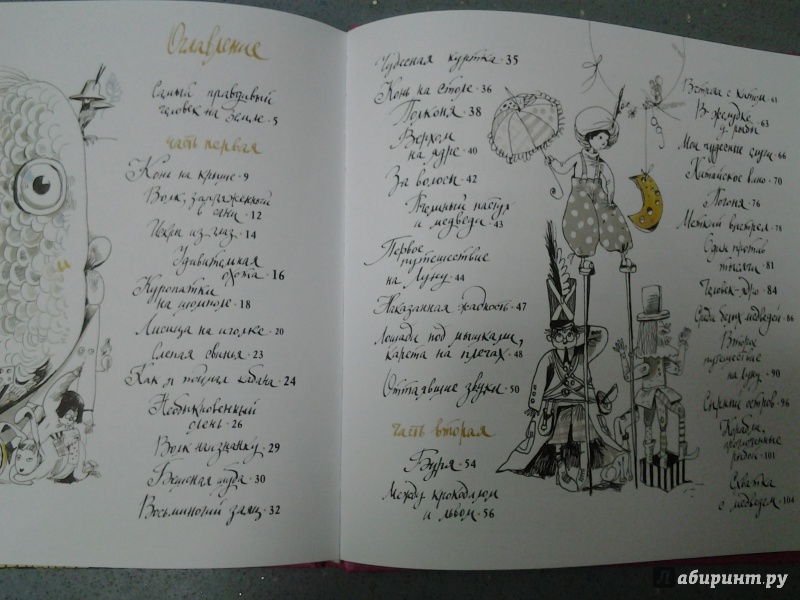 Оглавление
Самый правдивый
человек на земле · 5
Часть первая
Конь на крыше · 9
Волк, запряженный
в сани · 12
Искры из глаз · 14
Удивительная
охота · 16
Куропатки
на шомполе · 18
Лисица на иголке · 20
Слепая свинья · 23
Как я поймал кабана · 24
Необыкновенный
олень · 26
Волк наизнанку · 29
Бешеная шуба · 30
Восьминогий заяц · 32
Чудесная куртка · 35
Конь на столе · 36
Полконя · 38
Верхом
на ядре · 40
За волосы · 42
Пчелиный пастух
и медведи · 43
Первое
путешествие
на Луну · 44
Наказанная жадность · 47
Лошади под мышками,
карета на плечах · 48
Оттаявшие звуки · 50
Часть вторая
Буря · 54
Между крокодилом
и львом · 56
Встреча с китом · 61
В желудке
у рыбы · 63
Мои чудесные слуги · 66
Китайское вино · 70
Погоня · 76
Меткий выстрел · 78
Один против
тысячи · 81
Человек-ядро · 84
Среди белых медведей · 86
Второе
путешествие
на Луну · 90
Сырный остров · 96
Корабли,
проглоченные
рыбой · 101
Схватка
с медведем · 104
Лабиринт.ру